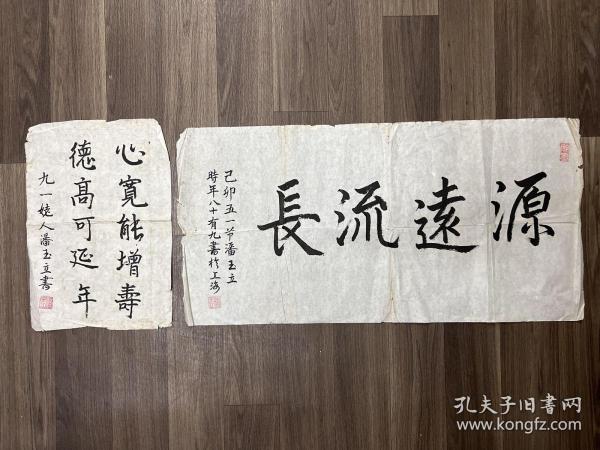 源遠流長
己卯五一节潘玉立
時年八十有九書於上海
心寬能增壽
德高可延年
九一嬈人潘玉立書
孔夫子旧書网
www.kongfz.com